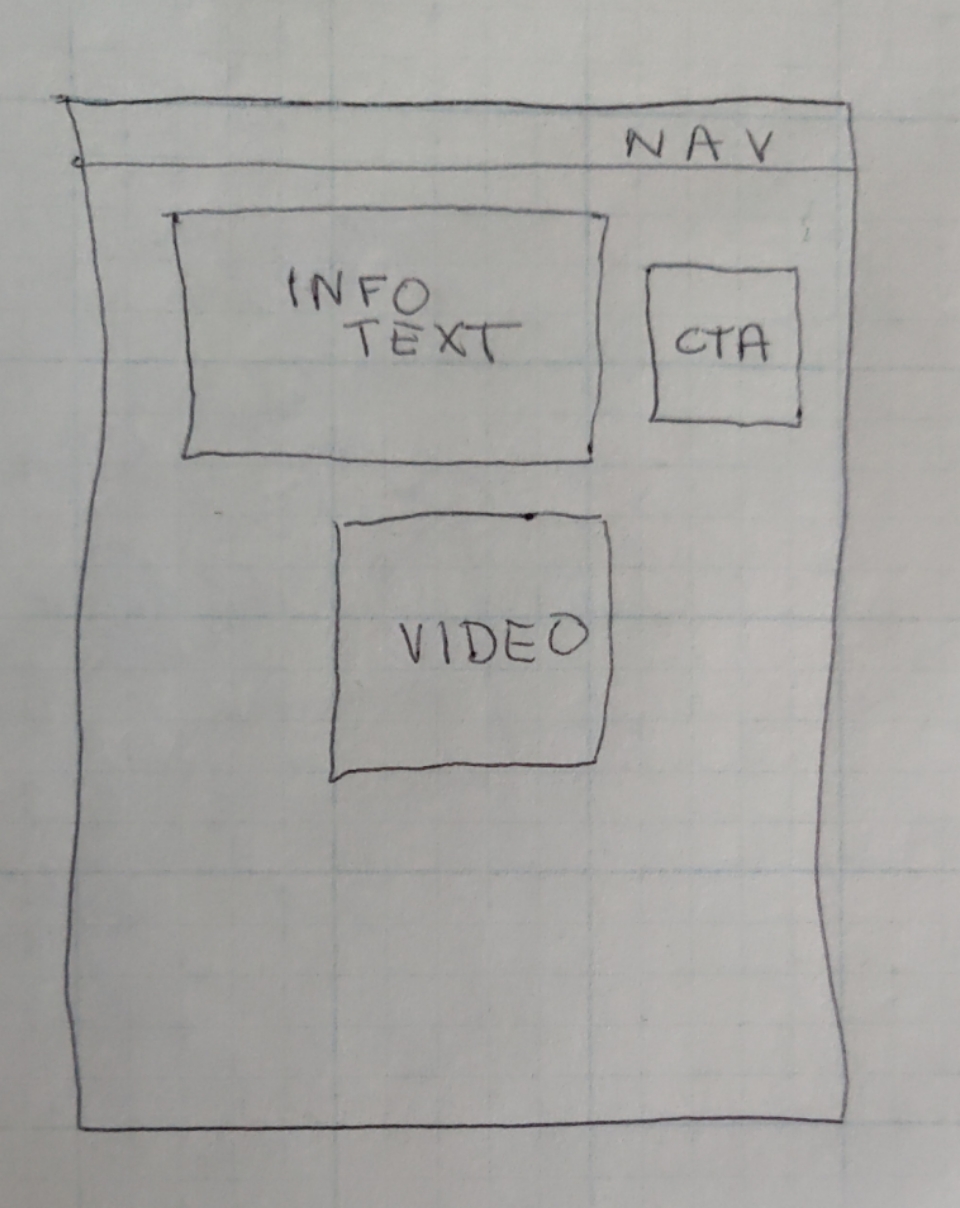 NAV
INFO
TEXT
CTA
VIDEO